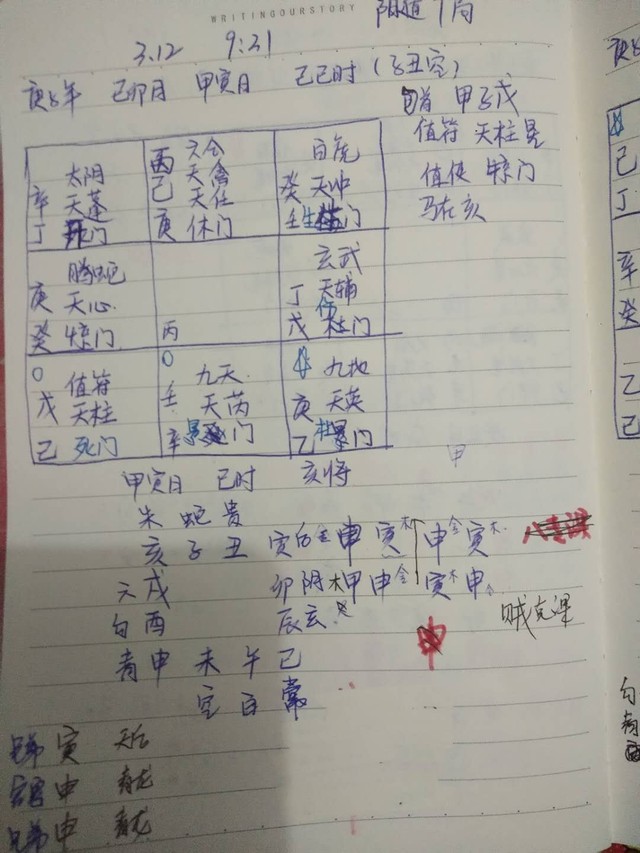 WRITINGOURSTORY
阳遁1局
3.12 9:21
庚子年 己卯月 甲寅日 己巳时（子丑空）
旬首 甲子戊
值符 天柱星
值使 惊门
马在亥
太阴
辛 天蓬
丁 开门
六合
丙 天禽
己 天任
庚 休门
白虎
癸 天冲
壬 生门
螣蛇
庚 天心
癸 惊门
丙
玄武
丁 天辅
戊 伤 杜门
值符
戊 天柱
己 死门
九天
壬 天芮
辛 景门
九地
庚 天英
乙 杜门
甲寅日 巳时 亥将
朱 蛇 贵
亥 子 丑 寅后 申 寅木 申金 寅木
六戌 卯阴 甲 申金 寅木 申金
勾酉 辰玄
青申 未 午 巳
空 白 常
贼克课
甲
申
兄弟 寅 天后
官鬼 申 青龙
兄弟 申 青龙
己
丁
辛
癸
乙
己
勾